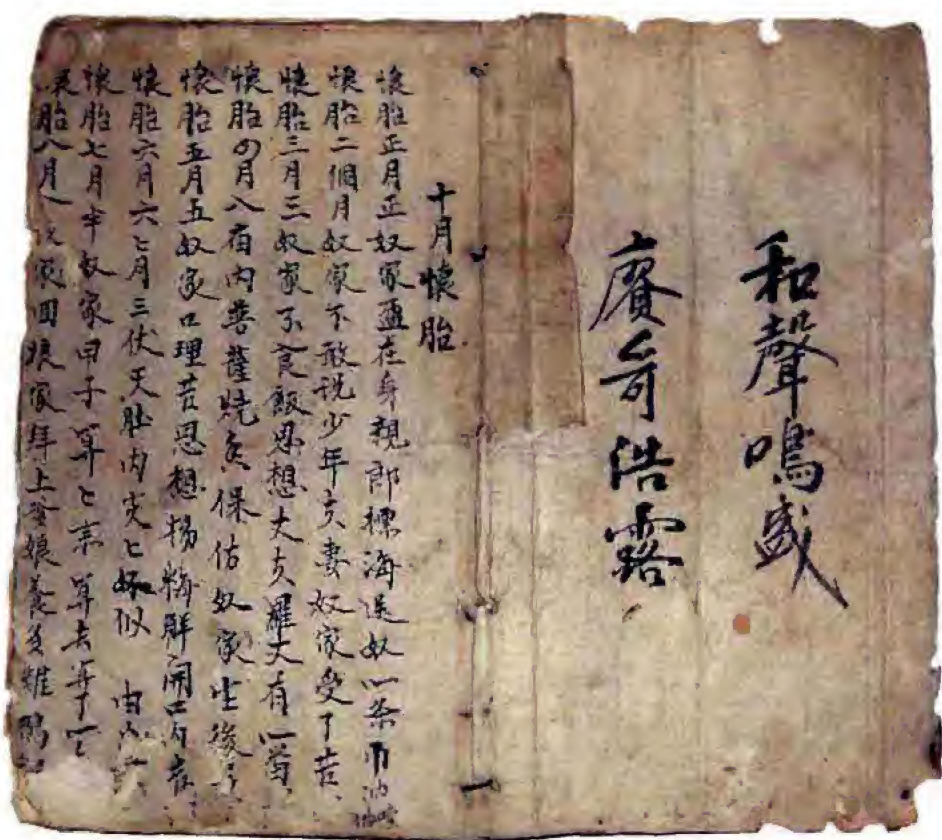 和聲鳴盛
賡哥浩露
十月懷胎
懷胎正月正奴家孟在身親郎標海送奴一条巾
懷胎二個月奴家不敢說少年夫妻奴家受了苦
懷胎三月三奴家不食飯思想大夫羅丈有一筒
懷胎四月八宿內菩薩燒香保佑奴家生後
懷胎五月五奴家口理苦思想楊梅解開口內
懷胎六月六七月三伏天肚內
懷胎七月半奴家甲子算七字算去算了一
懷胎八月八奴家回娘家拜上爹娘養